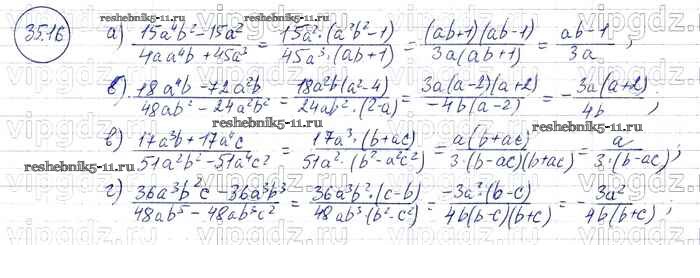 35.16
reshebnik5-11.ru reshebnik5-11.ru
а) (15a⁴b² - 15a²)/(4aa⁴b + 45a³) = (15a²·(a²b² - 1))/(45a³·(ab+1)) = ((ab+1)(ab-1))/(3a(ab+1)) = (ab-1)/(3a);
б) (18a⁴b - 72a²b)/(48ab² - 24a²b²) = (18a²b(a²-4))/(24ab²·(2-a)) = (3a(a-2)(a+2))/(-4b(a-2)) = -(3a(a+2))/(4b);
reshebnik5-11.ru
в) (17a³b + 17a⁴c)/(51a²b² - 51a⁴c²) = (17a³·(b+ac))/(51a²·(b²-a²c²)) = (a(b+ac))/(3·(b-ac)(b+ac)) = a/(3·(b-ac));
reshebnik5-11.ru reshebnik5-11.ru
г) (36a³b²c - 36a³b³)/(48ab⁵ - 48ab³c²) = (36a³b²·(c-b))/(48ab³·(b²-c²)) = (-3a²·(b-c))/(4b(b-c)(b+c)) = -(3a²)/(4b(b+c));
reshebnik5-11.ru
vipgdz.ru